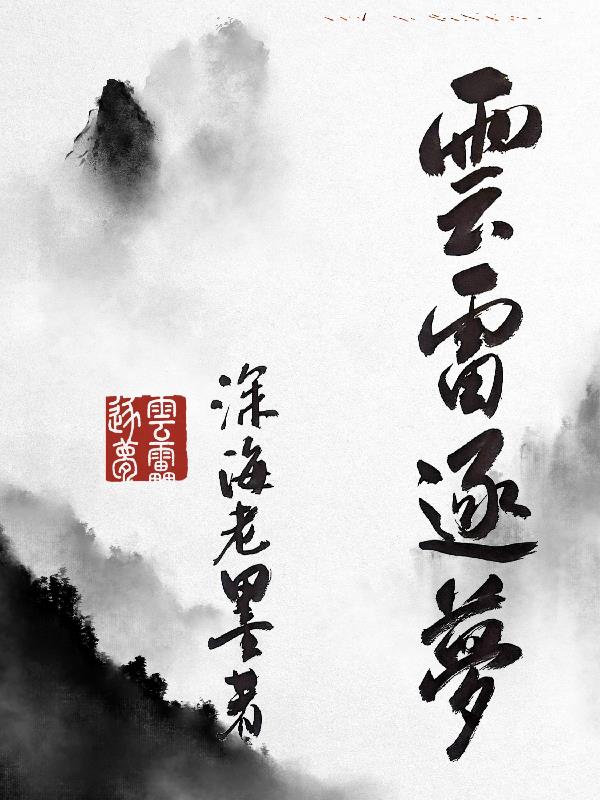 雲雷逐夢
深海老墨者
雲雷
逐夢